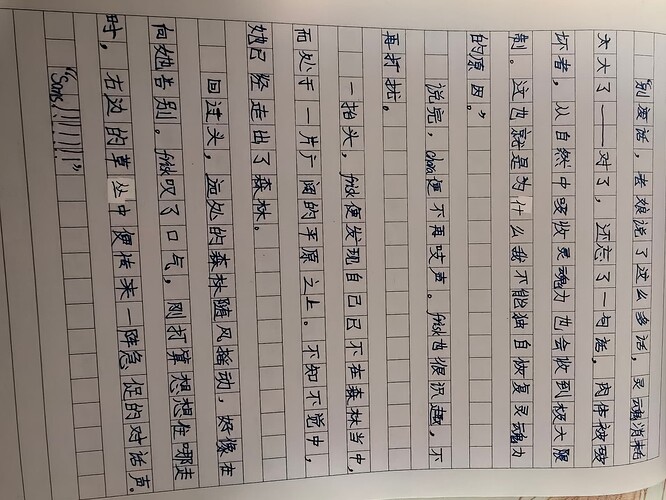 “别废话，老娘说了这么多话，灵魂消耗
太大了——对了，还忘了一句话，肉体被破
坏者，从自然中吸收灵魂力也会收到极大限
制。这也就是为什么我不能独自恢复灵魂力
的原因。”
说完，chara便不再吱声。frisk也很识趣，不
再打扰。
一抬头，frisk便发现自己已不在森林当中，
而处于一片广阔的平原之上。不知不觉中，
她已经走出了森林。
回过头，远处的森林随风摇动，好像在
向她告别。frisk叹了口气。刚打算想想往哪走
时，右边的草丛中便传来一阵急促的对话声。
“Sans!!!!!!!”